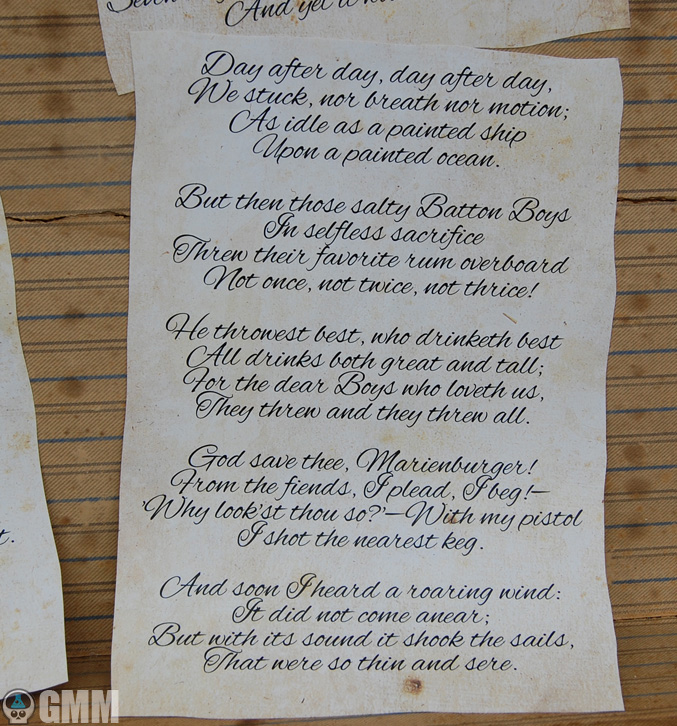 And yet it
Day after day, day after day,
We stuck, nor breath nor motion;
As idle as a painted ship
Upon a painted ocean.
But then those salty Batton Boys
In selfless sacrifice
Threw their favorite rum overboard
Not once, not twice, not thrice!
He throwest best, who drinketh best
All drinks both great and tall;
For the dear Boys who loveth us,
They threw and they threw all.
God save thee, Marienburger!
From the fiends, I plead, I beg!—
'Why look'st thou so?'—With my pistol
I shot the nearest keg.
And soon I heard a roaring wind:
It did not come anear;
But with its sound it shook the sails,
That were so thin and sere.
t.
GMM